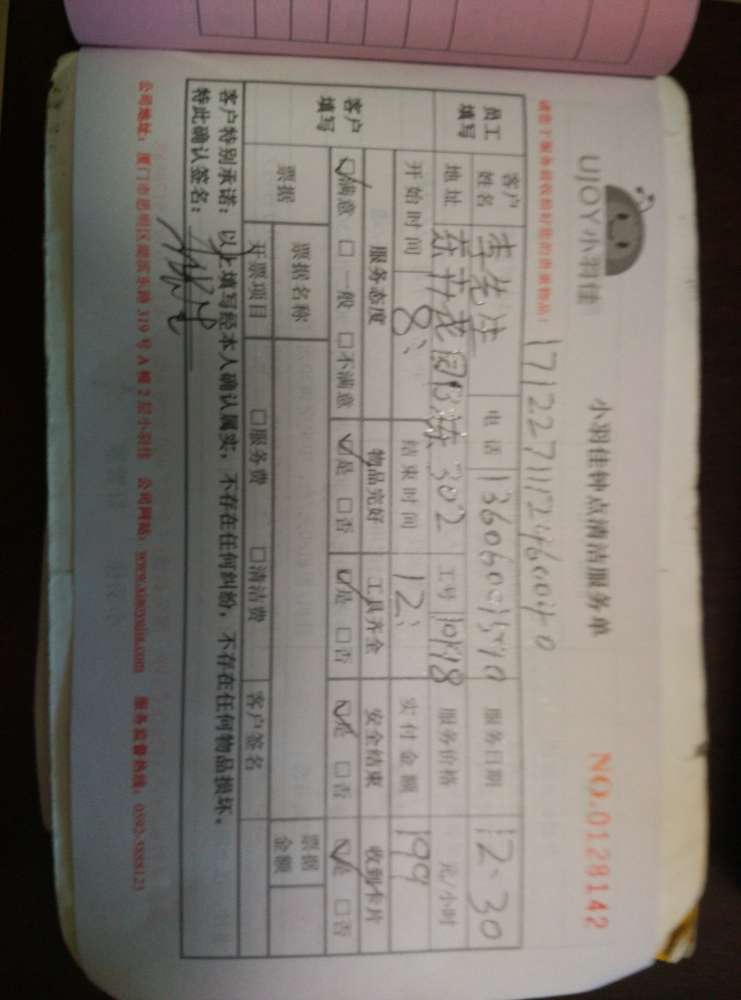 UJOY小羽佳
小羽佳钟点清洁服务单
NO.0128142
请您于服务前收拾好您的贵重物品!
1712271112460040
员工填写 客户姓名 李先生 电话 服务日期 12.30
地址 302 工号 服务价格 元/小时
开始时间 8: 结束时间 12: 实付金额 199
客户填写 服务态度 物品完好 工具齐全 安全结束 收到卡片
☑满意 □一般 □不满意 ☑是 □否 ☑是 □否 ☑是 □否 ☑是 □否
票据 票据名称 票据金额
开票项目 □服务费 □清洁费 客户签名
客户特别承诺:以上填写经本人确认属实,不存在任何纠纷,不存在任何物品损坏。
特此确认签名:
公司地址:厦门市思明区湖滨东路319号A幢2层小羽佳 公司网站:www.xiaoyujia.com 服务监督热线:0592-5888123